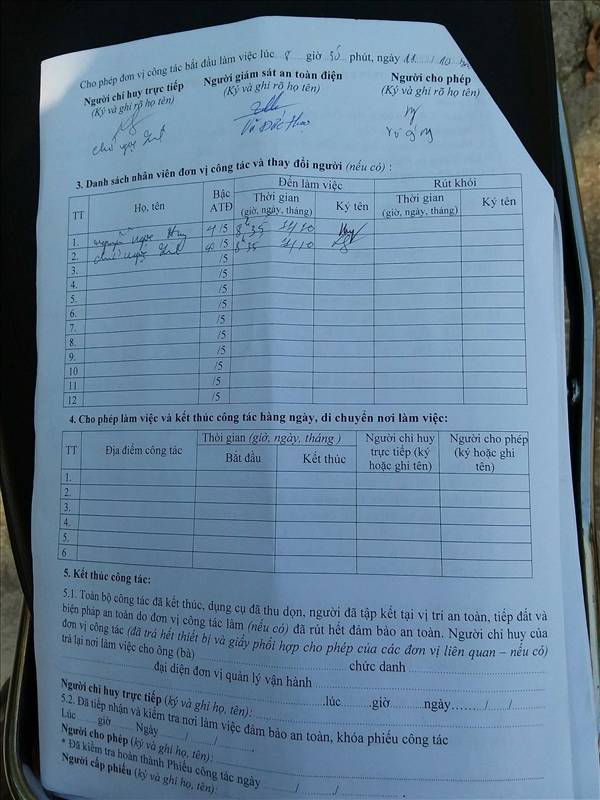 Cho phép đơn vị công tác bắt đầu làm việc lúc 8 giờ 30 phút, ngày 11 / 10
Người chỉ huy trực tiếp Người giám sát an toàn điện Người cho phép
(Ký và ghi rõ họ tên) (Ký và ghi rõ họ tên) (Ký và ghi rõ họ tên)
Vũ Đức
3. Danh sách nhân viên đơn vị công tác và thay đổi người (nếu có) :
TT Họ, tên Bậc ATĐ Đến làm việc Rút khỏi
Thời gian (giờ, ngày, tháng) Ký tên Thời gian (giờ, ngày, tháng) Ký tên
1. Nguyễn Ngọc Huy 4/5 8h35 11/10 Huy
2. Ngọc /5 8h35 11/10
3. /5
4. /5
5. /5
6. /5
7. /5
8. /5
9. /5
10 /5
11 /5
12 /5
4. Cho phép làm việc và kết thúc công tác hàng ngày, di chuyển nơi làm việc:
TT Địa điểm công tác Thời gian (giờ, ngày, tháng ) Người chỉ huy trực tiếp (ký hoặc ghi tên) Người cho phép (ký hoặc ghi tên)
Bắt đầu Kết thúc
1.
2.
3.
4.
5.
6
5. Kết thúc công tác:
5.1. Toàn bộ công tác đã kết thúc, dụng cụ đã thu dọn, người đã tập kết tại vị trí an toàn, tiếp đất và
biện pháp an toàn do đơn vị công tác làm (nếu có) đã rút hết đảm bảo an toàn. Người chỉ huy của
đơn vị công tác (đã trả hết thiết bị và giấy phối hợp cho phép của các đơn vị liên quan – nếu có)
trả lại nơi làm việc cho ông (bà) chức danh
đại diện đơn vị quản lý vận hành
Người chỉ huy trực tiếp (ký và ghi họ, tên): lúc giờ ngày / /
5.2. Đã tiếp nhận và kiểm tra nơi làm việc đảm bảo an toàn, khóa phiếu công tác
Lúc giờ Ngày / /
Người cho phép (ký và ghi họ, tên):
* Đã kiểm tra hoàn thành Phiếu công tác ngày / /
Người cấp phiếu (ký và ghi họ, tên):